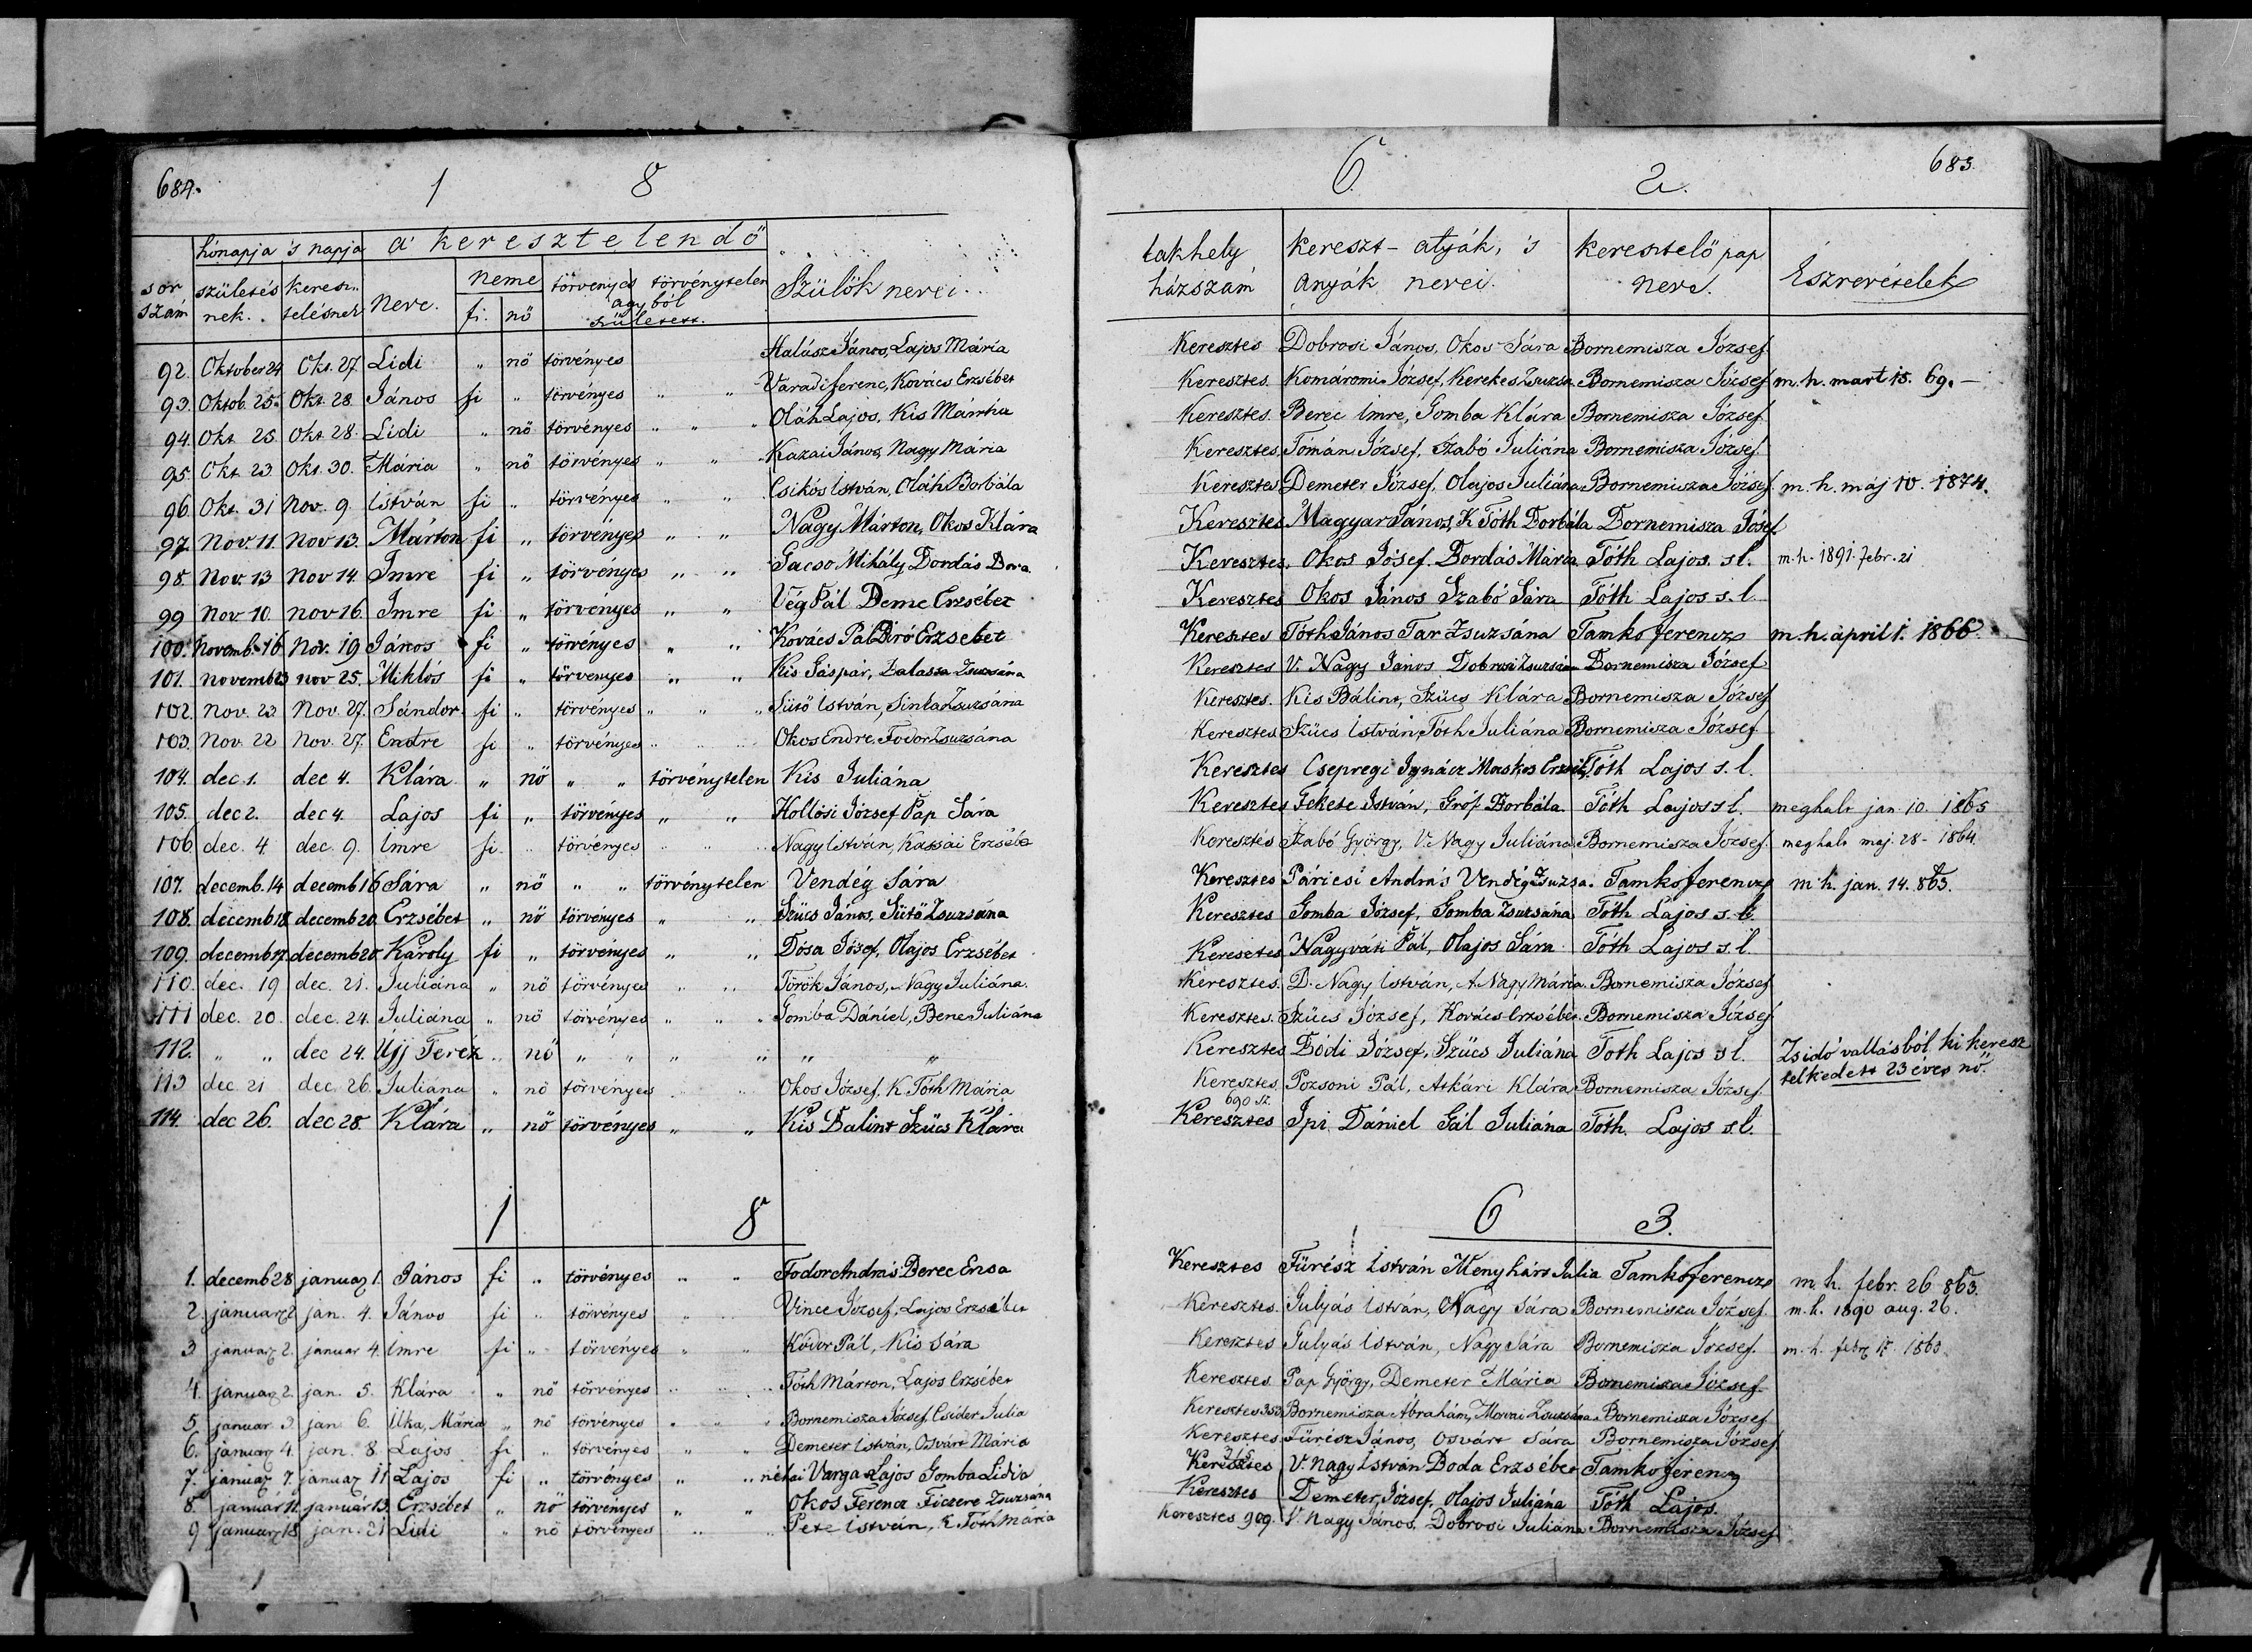 684.
1 8
hónapja 's napja a' keresztelendő
sor szám születésnek. keresztelésnek neve. neme fi. nő törvényes törvénytelen ágyból született. Szülők nevei
92. Oktober 24 Okt. 27. Lidi " nő törvényes Halász János, Lajos Mária
93. Oktob. 25. Okt. 28. János fi " törvényes " " Varadi ferenc, Kovács Erzsébet
94. Okt 25. Okt 28. Lidi " nő törvényes " " " Oláh Lajos, Kis Mártha
95. Okt. 23 Okt. 30. Mária " nő törvényes " " " Kazai János, Nagy Mária
96. Okt. 31 Nov. 9. István fi " törvényes " " Csikós István, Oláh Borbála
97. Nov. 11. Nov 13. Márton fi " törvényes " " Nagy Márton, Okos Klára
98. Nov. 13 Nov 14. Imre fi " törvényes " " Gacso Mihály Bordás Dora
99 Nov 10. nov 16. Imre fi " törvenyes " " Vég Pál Deme Erzsébet
100. Novemb. 16 Nov. 19 János fi " törvényes " " Kovács Pál Biró Erzsebet
101. novemb 23 nov 25. Miklós fi " törvenyes " " Kis Gáspár, Balassa Zsuzsána
102. Nov. 23 Nov. 27. Sándor fi " törvényes " " " Sütő István, Sinka Zsuzsána
103. Nov. 22 Nov. 27. Endre fi " törvényes " " " Okos Endre, Fodor Zsuzsána
104. dec 1. dec 4. Klára " nő " " törvénytelen Kis Juliána
105. dec 2. dec 4. Lajos fi " törvényes " " Hollósi József Pap Sára
106 dec. 4. dec. 9. Imre fi " törvényes " " " Nagy István, Kassai Erzsébe
107. decemb. 14 decemb 16 Sára " nő " " törvénytelen Vendég Sára
108. decemb 18 decemb 20. Erzsébet " nő törvényes " " Szücs János, Sütő Zsuzsána
109. decemb 17. decemb 20. Károly fi " törvényes " " Dósa József, Olajos Erzsébet
110. dec. 19 dec. 21. Juliána " nő törvényes " " Török János, Nagy Juliána.
111 dec. 20. dec. 24. Juliána " nő törvényes " " " Gomba Dániel, Bene Juliána
112. " " dec 24. Ujj Teréz " nő " " " " " "
113 dec. 21 dec. 26 Juliána " nő törvényes " " Okos József, K. Tóth Mária
114. dec 26. dec 28. Klára " nő törvényes " " Kis Bálint Szücs Klára
1 8
1. decemb 28 januar 1. János fi " törvényes " " Fodor András Berec Ersa
2. januar 2 jan. 4. János fi " törvényes " " Vince József, Lajos Erzsébet
3 januar 2. január 4. Imre fi " törvényes " " Kódor Pál, Kis Sára
4. januar 2. jan. 5. Klára " nő törvényes " " " Tóth Márton, Lajos Erzsébet
5. januar 3 jan 6. Ilka, Mária " nő törvényes " " " Bornemisza József, Csider Julia
6. januar 4. jan. 8. Lajos fi " törvényes " " Demeter István, Osvárt Mária
7. januar 7. januar 11 Lajos fi " törvényes " " néhai Varga Lajos Gomba Lidia
8. január 11. január 13. Erzsébet " nő törvényes " " Okos Ferencz Ficzere Zsuzsána
9 januar 18 jan. 21 Lidi " nő törvényes " " Pete István, K. Tóth Mária
6 2. 683.
lakhely házszám kereszt-atyák, 's anyák nevei. keresztelő pap neve. Észrevételek
Keresztes Dobrosi János, Okos Sára Bornemisza József.
Keresztes. Komáromi József, Kerekes Zsuzsa. Bornemisza József m. h. mart 15. 69. –
Keresztes. Berec Imre, Gomba Klára Bornemisza József.
Keresztes. Tómán József, Szabó Juliána Bornemisza József.
Keresztes Demeter József, Olajos Juliána Bornemisza József. m. h. máj 10. 1874.
Keresztes. Magyar János, K Tóth Borbála Bornemisza Jósef.
Keresztes. Okos Jósef. Bordás Mária Tóth Lajos. s l. m. h. 1891. febr. 21
Keresztes Okos János Szabó Sára Tóth Lajos s. l.
Keresztes Tóth János Tar Zsuzsána Tamko ferencz m. h. april 1. 1866.
Keresztes V. Nagy János Dobrosi Zsuzsána Bornemisza József
Keresztes. Kis Bálint, Szücs Klára Bornemisza József
Keresztes Szücs István, Tóth Juliána Bornemisza József
Keresztes Csepregi Ignácz Maskos Erzsé, Tóth Lajos s. l.
Keresztes Fekete István, Gróf Borbála Tóth Lajos s l. meghalt jan 10. 1865
Keresztes Szabó György, V. Nagy Juliána Bornemisza József. meghalt maj. 28 - 1864.
Keresztes Páricsi András Vendég Zsuzsa. Tamko ferencz m. h. jan. 14. 863.
Keresztes Gomba József, Gomba Zsuzsána Tóth Lajos s. l.
Keresztes Nagyváti Pál, Olajos Sára Tóth Lajos s. l.
Keresztes. D. Nagy István, A. Nagy Mária Bornemisza József
Keresztes. Szücs József, Kovács Erzsébet. Bornemisza József
Keresztes Bódi József, Szücs Juliána Toth Lajos s l. Zsidó vallásból ki keresz
telkedett 23 éves nő.
Keresztes Pozsoni Pál, Atkári Klára Bornemisza József
690 sz.
Keresztes Ipi Dániel Gál Juliána Tóth. Lajos s. l.
6 3.
Keresztes Fürész István Menyhárt Julia Tamko ferencz m. h. febr. 26 863.
Keresztes. Gulyás István, Nagy Sára Bornemisza József. m. h. 1890 aug. 26.
Keresztes Gulyás István, Nagy Sára Bornemisza József. m. h. febr 17. 1863
Keresztes Pap György, Demeter Mária Bornemisza József.
Keresztes 353 Bornemisza Ábrahám, Marai Zsuzsána Bornemisza József
Keresztes Fürész János, Osvárt Sára Bornemisza József
Keresztes V. Nagy István Boda Erzsébet Tamko ferencz
Keresztes Demeter József, Olajos Juliána Tóth Lajos.
Keresztes 909. V. Nagy János, Dobrosi Juliána Bornemisza József